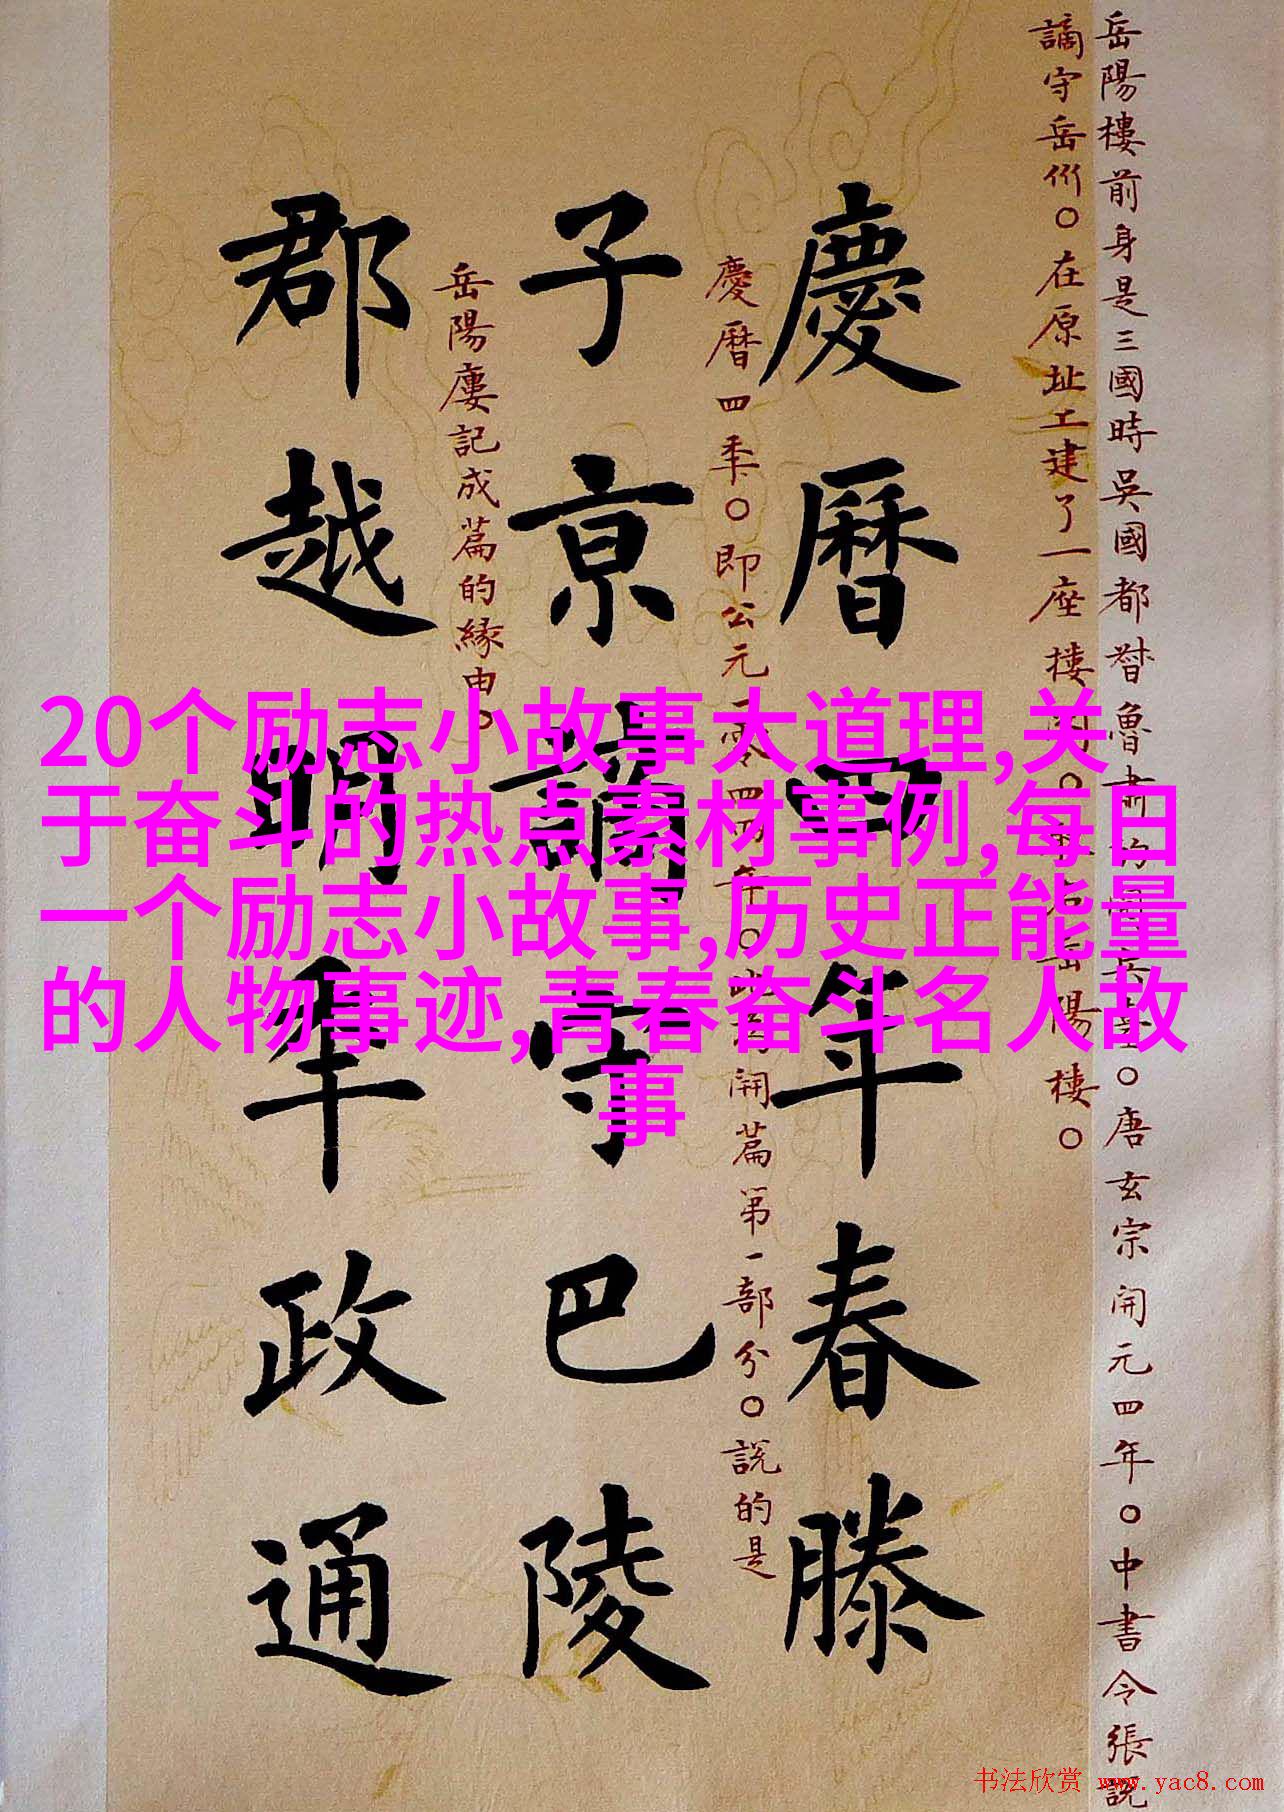 岳陽樓前身是三國時吳國都督魯肅的閱兵臺〇唐玄宗開元四年〇中書令張說
謫守岳州〇在原址工建了一座樓〇名岳陽樓〇
慶曆四年春滕
慶曆四秊〇即公元一零四四年〇此開篇第一部分〇説的是
子京謫守巴陵
岳陽廔記成篇的緣由〇
郡越明秊政通
20个励志小故事大道理,关
于奋斗的热点素材事例,每日
一个励志小故事,历史正能量
的人物事迹,青春奋斗名人故
事
书法欣赏 www.yac8.com